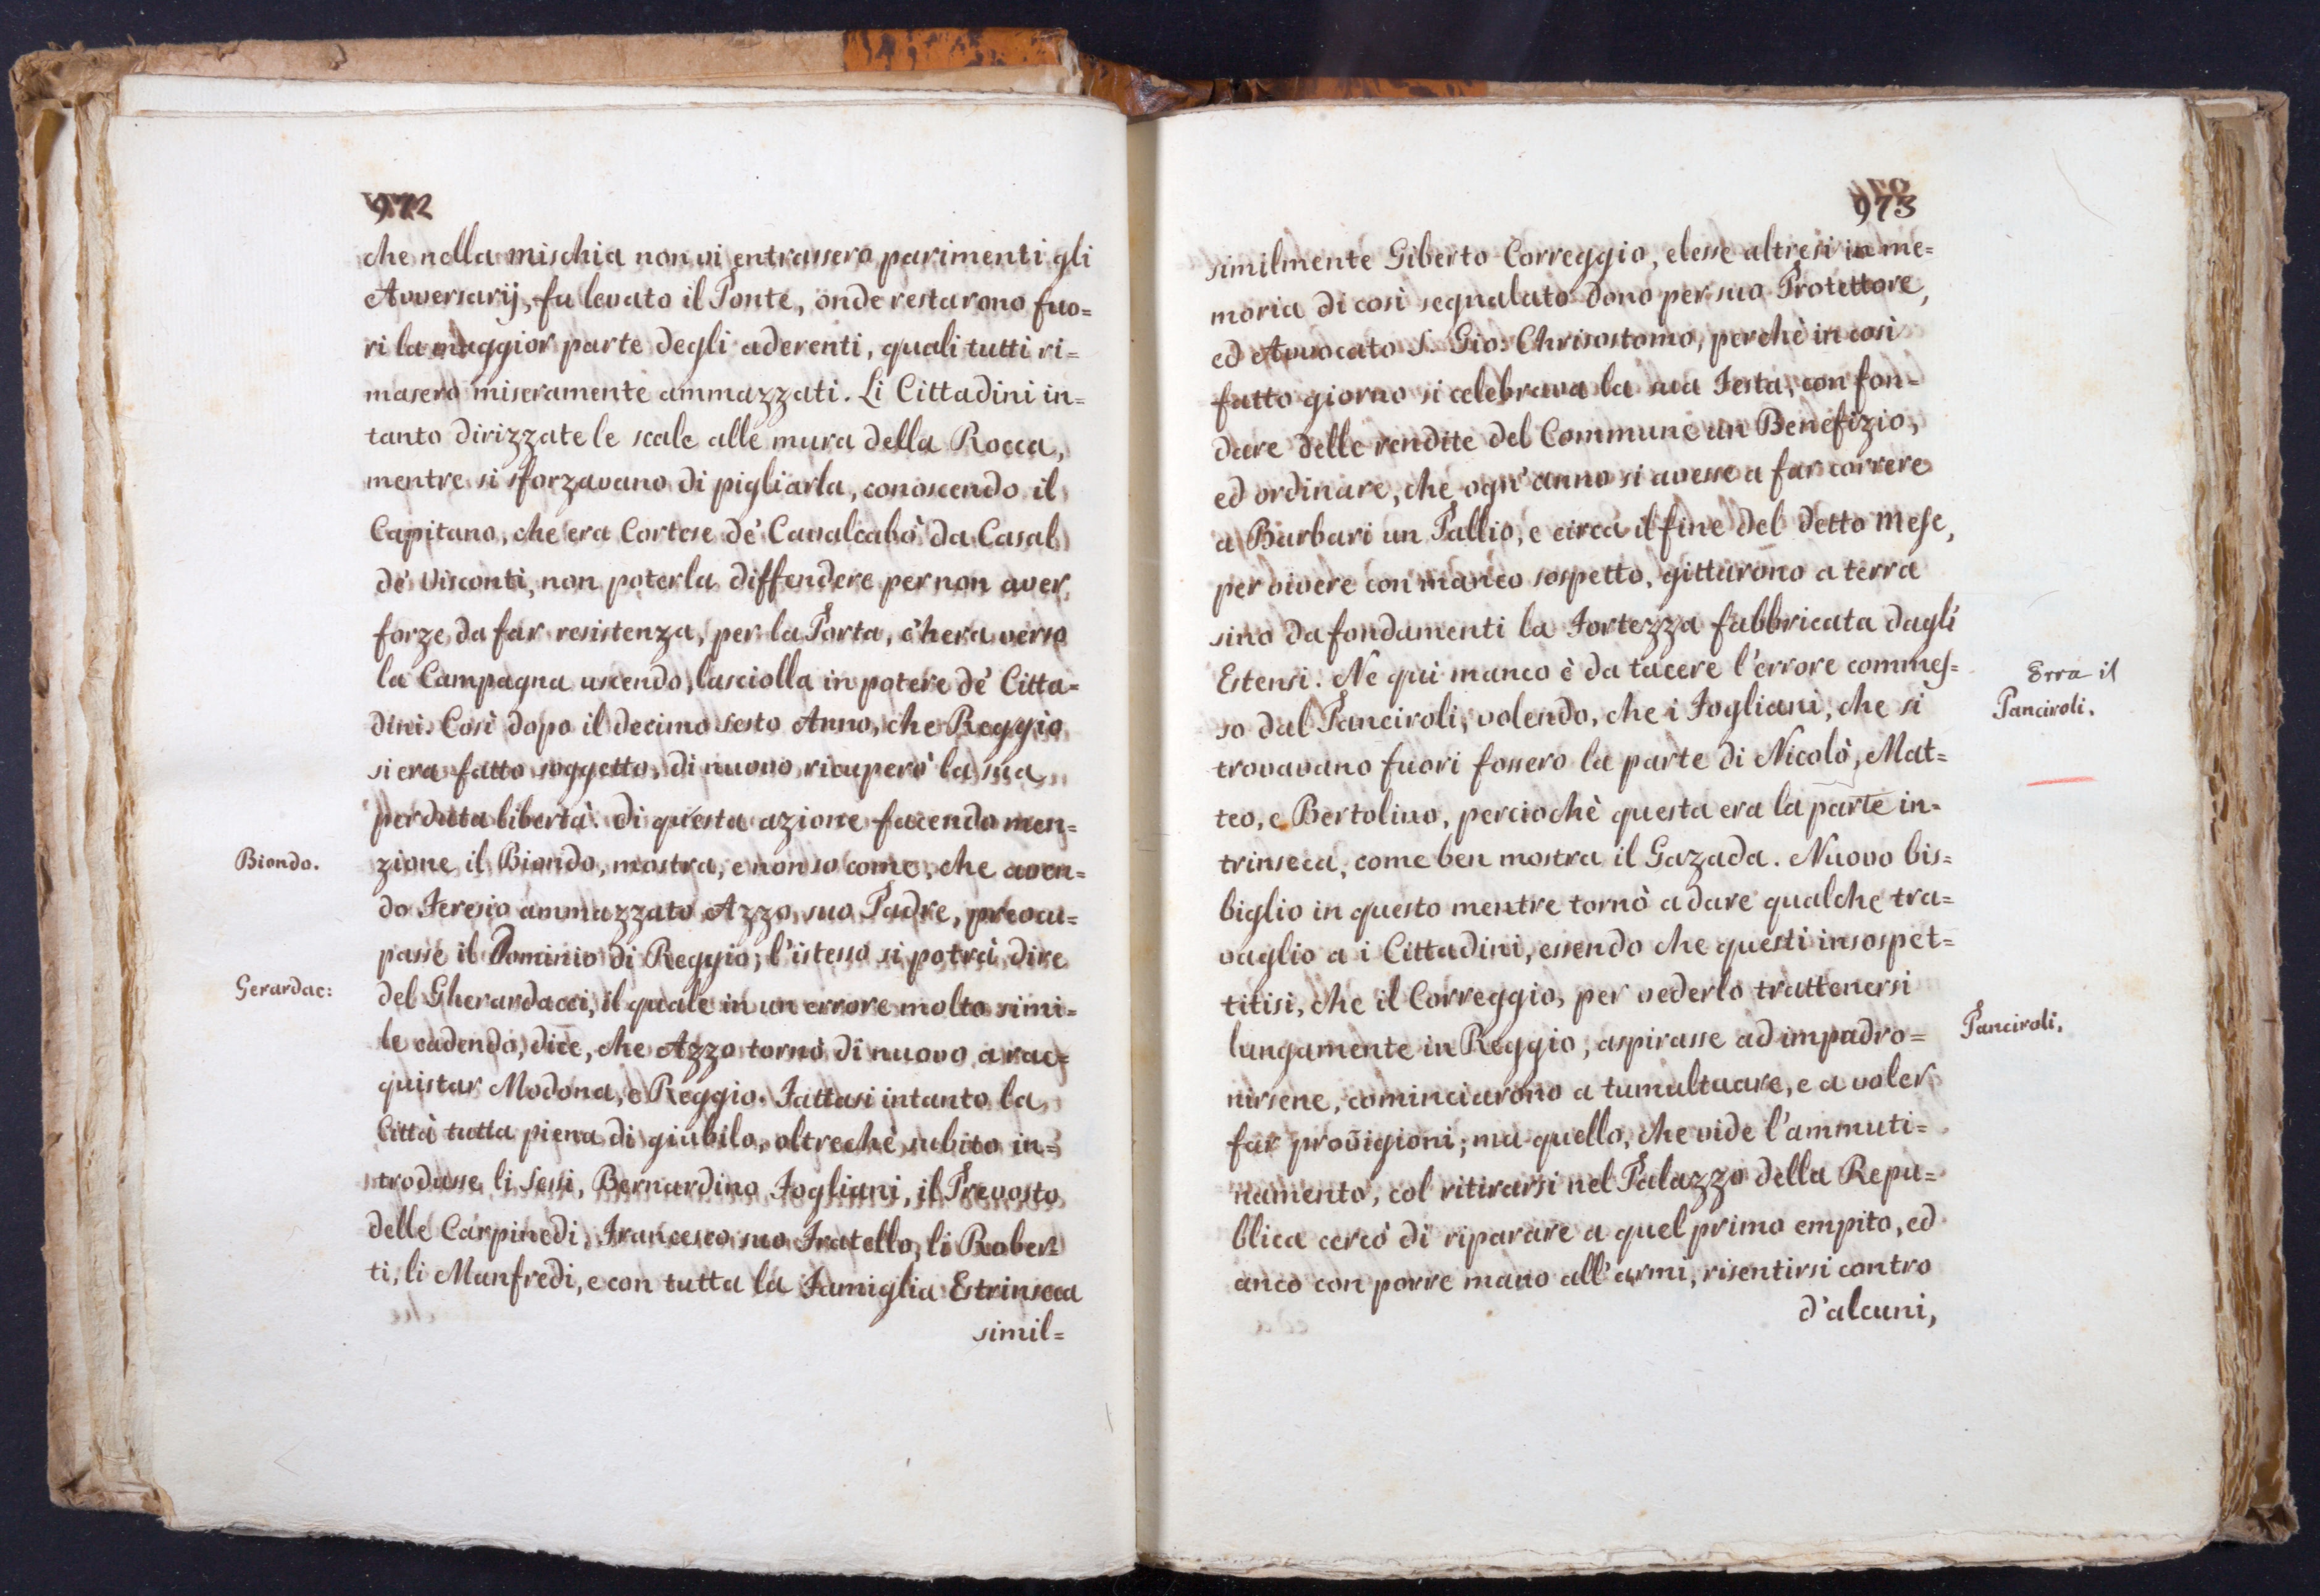 972
che nella mischia non vi entrassero parimenti gli
Avversarij, fu levato il Ponte, onde restarono fuo=
ri la maggior parte degli aderenti, quali tutti ri=
masero miseramente ammazzati. Li Cittadini in=
tanto dirizzate le scale alle mura della Rocca,
mentre si sforzavano di pigliarla, conoscendo il
Capitano, che era Cortese de' Cavalcabò da Casal
de' Visconti, non poterla diffendere per non aver
forze da far resistenza, per la Porta, ch'era verso
la Campagna uscendo, lasciolla in potere de' Citta=
dini. Così dopo il decimo sesto Anno, che Reggio
si era fatto soggetto, di nuovo ricuperò la sua
perduta libertà. di questa azione facendo men=
Biondo.
zione il Biondo, mostra, e non so come, che aven=
do Feresio ammazzato Azzo suo Padre, preocu=
passe il Dominio di Reggio; l'istesso si potrà dire
Gerardac:
del Gherardacci, il quale in un errore molto simi=
le cadendo, dice, che Azzo tornò di nuovo a rac=
quistar Modona, e Reggio. Fattasi intanto la
Città tutta piena di giubilo, oltrechè subito in=
trodusse li Sessi, Bernardino Fogliani, il Prevosto
delle Carpinedi, Francesco suo Fratello, li Rober
ti, li Manfredi, e con tutta la Famiglia Estrinseca
simil=
973
similmente Giberto Correggio, elesse altresi in me=
moria di così segnalato dono per suo Protettore,
ed Avvocato S. Gio: Chrisostomo, perchè in così
fatto giorno si celebrava la sua Festa, con fon=
dare delle rendite del Commune un Benefizio,
ed ordinare, che ogn'anno si avesse a far correre
a Barbari un Pallio, e circa il fine del detto Mese,
per vivere con manco sospetto, gittarono a terra
sino da fondamenti la Fortezza fabbricata dagli
Estensi. Ne qui manco è da tacere l'errore commes=
Erra il
Panciroli.
so dal Panciroli, volendo, che i Fogliani, che si
trovavano fuori fossero la parte di Nicolò, Mat=
teo, e Bertolino, perciochè questa era la parte in=
trinseca, come ben mostra il Gazada. Nuovo bis=
biglio in questo mentre tornò a dare qualche tra=
vaglio a i Cittadini, essendo che questi insospet=
titisi, che il Correggio, per vederlo trattenersi
Panciroli.
lungamente in Reggio, aspirasse ad impadro=
nirsene, cominciarono a tumultuare, e a voler
far provigioni; ma quello, che vide l'ammuti=
namento, col ritirarsi nel Palazzo della Repu=
blica cercò di riparare a quel primo empito, ed
anco con porre mano all'armi, risentirsi contro
d'alcuni,